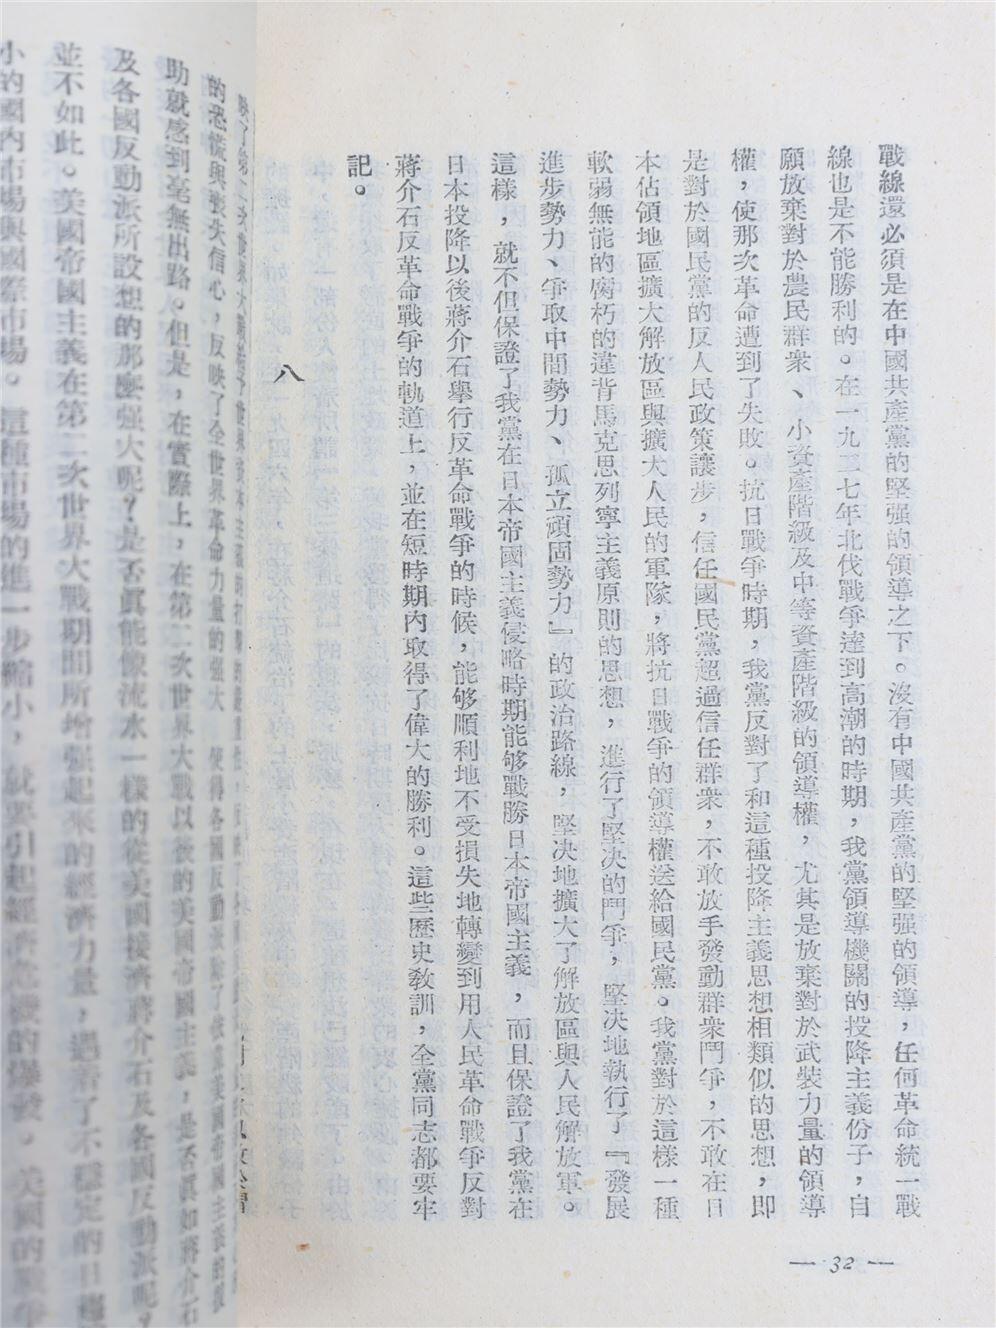 戰線還必須是在中國共產黨的堅强的領導之下。沒有中國共產黨的堅强的領導，任何革命統一戰
線也是不能勝利的。在一九二七年北伐戰爭達到高潮的時期，我黨領導機關的投降主義份子，自
願放棄對於農民群衆、小資產階級及中等資產階級的領導權，尤其是放棄對於武裝力量的領導
權，使那次革命遭到了失敗。抗日戰爭時期，我黨反對了和這種投降主義思想相類似的思想，即
是對於國民黨的反人民政策讓步，信任國民黨超過信任群衆，不敢放手發動群衆鬥爭，不敢在日
本佔領地區擴大解放區與擴大人民的軍隊，將抗日戰爭的領導權送給國民黨。我黨對於這樣一種
軟弱無能的腐朽的違背馬克思列寧主義原則的思想，進行了堅决的鬥爭，堅决地執行了『發展
進步勢力、爭取中間勢力、孤立頑固勢力』的政治路線，堅决地擴大了解放區與人民解放軍。
這樣，就不但保證了我黨在日本帝國主義侵略時期能够戰勝日本帝國主義，而且保證了我黨在
日本投降以後蔣介石舉行反革命戰爭的時候，能够順利地不受損失地轉變到用人民革命戰爭反對
蔣介石反革命戰爭的軌道上，並在短時期內取得了偉大的勝利。這些歷史教訓，全黨同志都要牢
記。
八
— 32 —
的恐慌與喪失信心，反映了全世界革命力量的强大
助就感到毫無出路。但是，在實際上，在第二次世界大戰以後的美國帝國主義，是否眞如蔣介石
及各國反動派所設想的那麼强大呢？是否眞能像流水一樣的從美國接濟蔣介石及各國反動派呢？
並不如此。美國帝國主義在第二次世界大戰期間所增强起來的經濟力量，遇着了不穩定的日趨
小的國內市場與國際市場。這種市場的進一步縮小，就要引起經濟危機的爆發。美國的戰爭